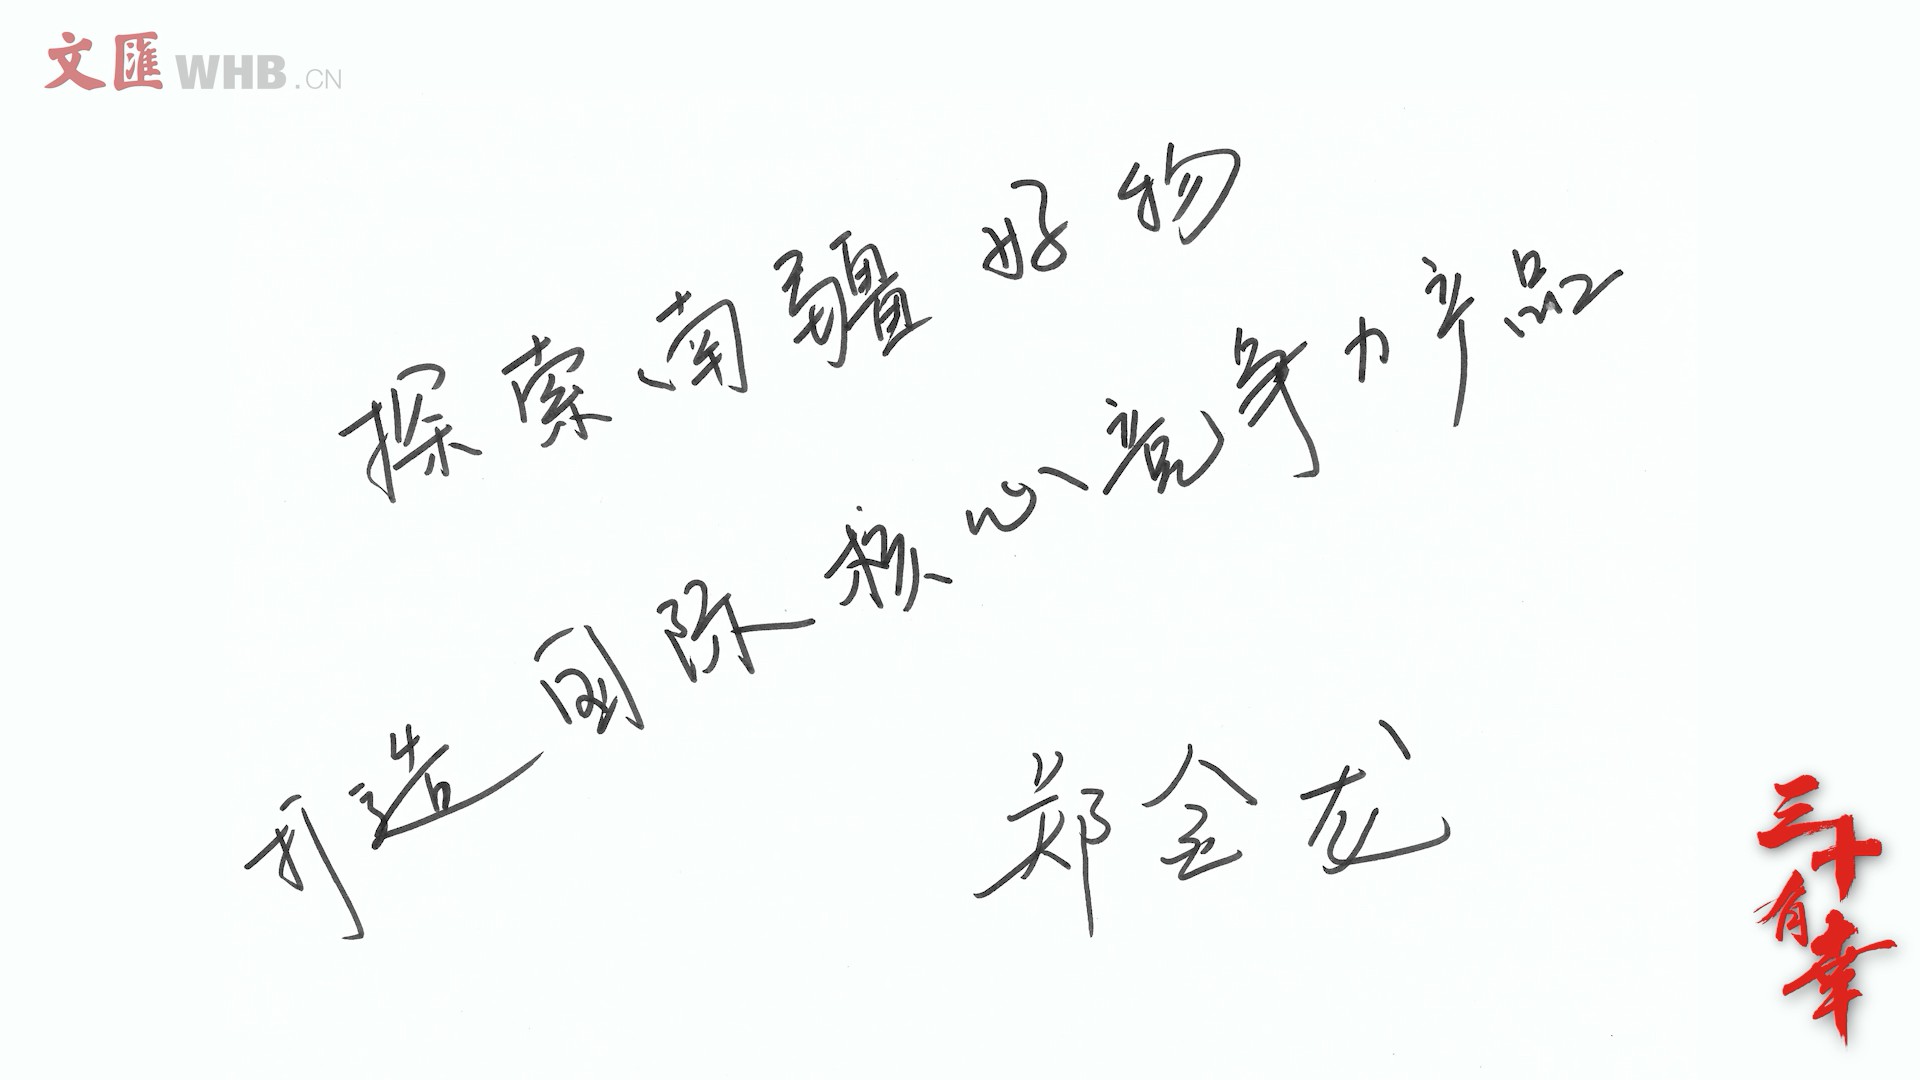 文匯 WHB.CN
探索南疆好物
打造国际核心竞争力产品
郑金龙
三十
有幸